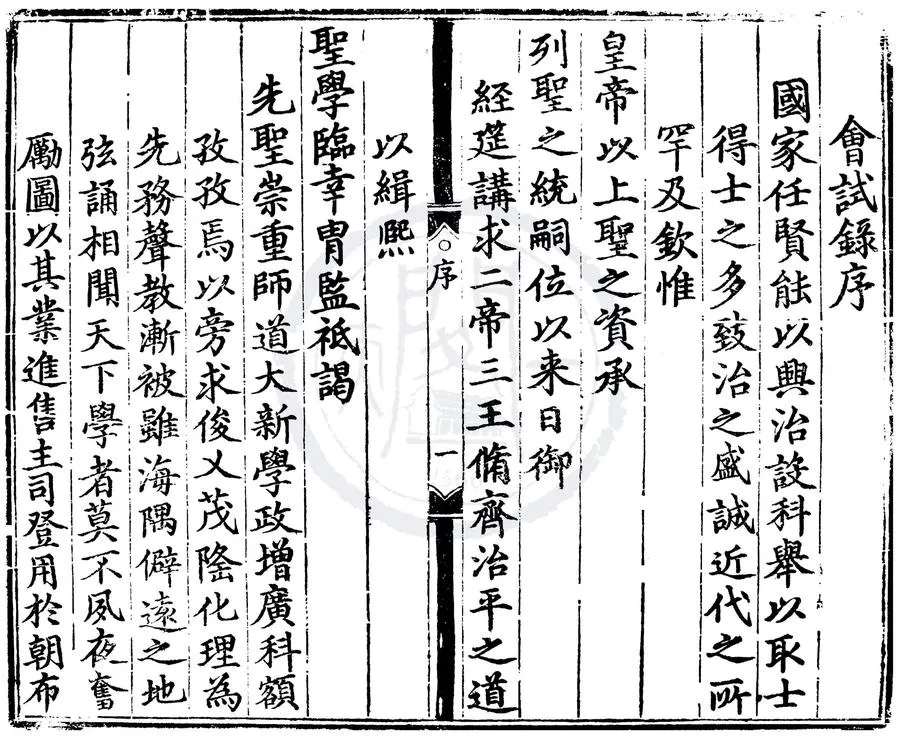 會試錄序
國家任賢能以興治設科舉以取士
得士之多致治之盛誠近代之所
罕及欽惟
皇帝以上聖之資承
列聖之統嗣位以来日御
經筵講求二帝三王脩齊治平之道
序
一
以緝熙
聖學臨幸胄監祗謁
先聖崇重師道大新學政增廣科額
孜孜焉以旁求俊乂茂隆化理為
先務聲教漸被雖海隅僻遠之地
弦誦相聞天下學者莫不夙夜奮
勵圖以其業進售主司登用於朝布